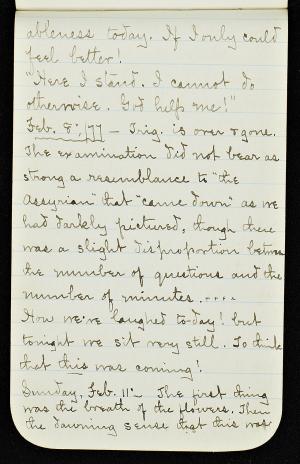 ableness today. If I only could
feel better!
"Here I stand. I cannot do
otherwise. God help me!"
Feb. 8, '77 – Trig. is over & gone.
The examination did not bear as
strong a resemblance to "the
Assyrian" that "came down" as we
had darkly pictured, though there
was a slight disproportion between
the number of questions and the
number of minutes.....
How we've laughed to-day! but
tonight we sit very still. To think
that this was coming!
Sunday, Feb. 11– The first thing
was the breath of the flowers. Then
the dawning sense that this was